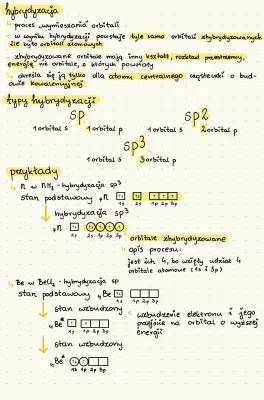 hybrydyzacja
↳ proces „wymieszania" orbitali
↳ w wyniku hybrydyzacji powstaje tyle samo orbitali zhybrydyzowanych
ile było orbitali atomowych
- zhybrydyzowane orbitale mają inny kształt, rozkład przestrzenny,
energię niż orbitale, z których powstały
↳ określa się ją tylko dla atomu centralnego cząsteczki o bud-
owie kowalencyjnej
typy hybrydyzacji
sp
1 orbital s 1 orbital p
sp2
1 orbital s 2 orbital p
sp3
1 orbital s 3 orbital p
przykłady
↳ N w NH3 - hybrydyzacja sp3
stan podstawowy 7N
1s 2s 1p 2p 3p
hybrydyzacja sp3
7N
1s 2s 1p 2p 3p
orbitale zhybrydyzowane
↳ opis procesu:
jest ich 4, bo wzięły udział 4
orbitale atomowe (1s i 3p)
↳ Be w BeCl2 - hybrydyzacja sp
stan podstawowy 4Be
1s 1p 2p 3p
stan wzbudzony
4Be*
1s 1p 2p 3p
↳ wzbudzenie elektronu i jego
przejście na orbital o wyższej
energii
stan wzbudzony
4Be*
1s 1p 2p 3p